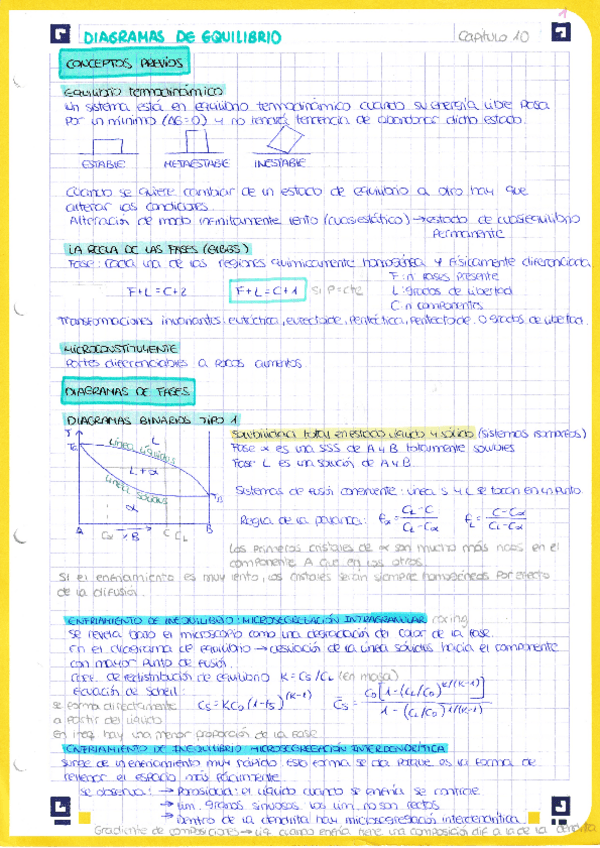 1
DIAGRAMAS DE EQUILIBRIO
Capítulo 10
CONCEPTOS PREVIOS
Equilibrio termodinámico
Un sistema está en equilibrio termodinámico cuando su energía libre pasa
por un mínimo (ΔG=0) y no tendrá tendencia de abandonar dicho estado.
ESTABLE METAESTABLE INESTABLE
Cuando se quiere cambiar de un estado de equilibrio a otro hay que
alterar las condiciones.
Alteración de modo infinitamente lento (cuasiestático) → estado de cuasiequilibrio
permanente
LA REGLA DE LAS FASES (GIBBS)
Fase: cada una de las regiones químicamente homogénea y físicamente diferenciada
F: n fases presente
F+L=C+2 F+L=C+1 si P=cte L: grados de libertad
C: n componentes
Transformaciones invariantes: eutéctica, eutectoide, peritéctica, peritectoide. 0 grados de libertad.
MICROCONSTITUYENTE
Partes diferenciables a pocos aumentos
DIAGRAMAS DE FASES
DIAGRAMAS BINARIOS TIPO 1
Solubilidad total en estado líquido y sólido (sistemas isomorfos)
Fase α es una SSS de A y B totalmente solubles
Fase L es una solución de A y B.
T
L
Línea líquidus
L+α
Línea sólidus
α
A Cα %B C CL B
Sistemas de fusión congruente: línea S y L se tocan en un punto.
Regla de la palanca: fα = CL-C / CL-Cα fL = C-Cα / CL-Cα
Los primeros cristales de α son mucho más ricos en el
componente A que en los otros.
Si el enfriamiento es muy lento, los cristales serán siempre homogéneos por efecto
de la difusión.
ENFRIAMIENTO DE INEQUILIBRIO: MICROSEGREGACIÓN INTRAGRANULAR
Se revela bajo el microscopio como una degradación del color de la fase.
En el diagrama de equilibrio → desviación de la línea sólidus hacia el componente
con mayor punto de fusión.
Coef. de redistribución de equilibrio K = CS/CL (en masa)
Ecuación de Scheil:
se forma directamente
a partir del líquido
CS = KC0(1-fS)^(K-1) C̄S = C0[1-(CL/C0)^K/(K-1)] / 1-(CL/C0)^1/(K-1)
En ineq hay una menor proporción de la fase
ENFRIAMIENTO DE INEQUILIBRIO MICROSEGREGACIÓN INTERDENDRÍTICA
Surge de un enfriamiento muy rápido. Esta forma se da porque es la forma de
rellenar el espacio más fácilmente.
Se observa: → Porosidad: el líquido cuando se enfría se contrae
→ Lím. granos sinuosos. Los lím. no son rectos
→ Dentro de la dendrita hay microsegregación interdendrítica
Gradiente de composiciones → Liq cuando enfría tiene una composición dif a la de la dendrita